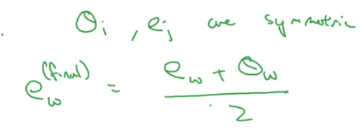 θi , ej are symmetric
ew(final) = ew + θw / 2